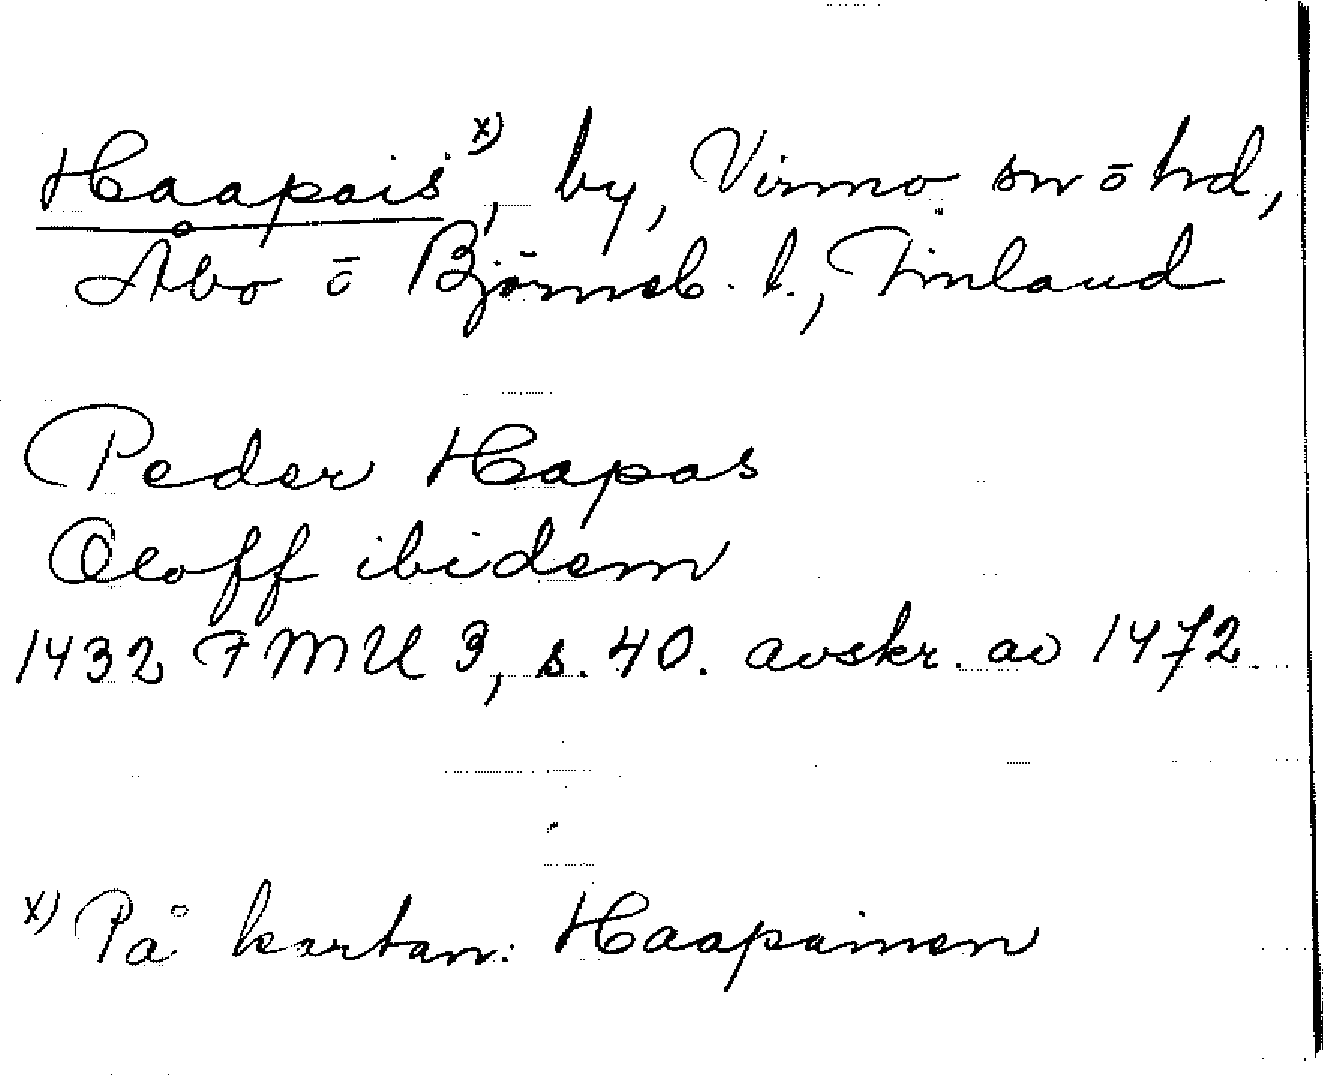 Haapais x), by, Virmo sn ō hd,
Åbo ō Björneb. l., Finland
Peder Hapas
Oloff ibidem
1432 FMU 3, s. 40. avskr. av 1472.
x) På kartan: Haapainen